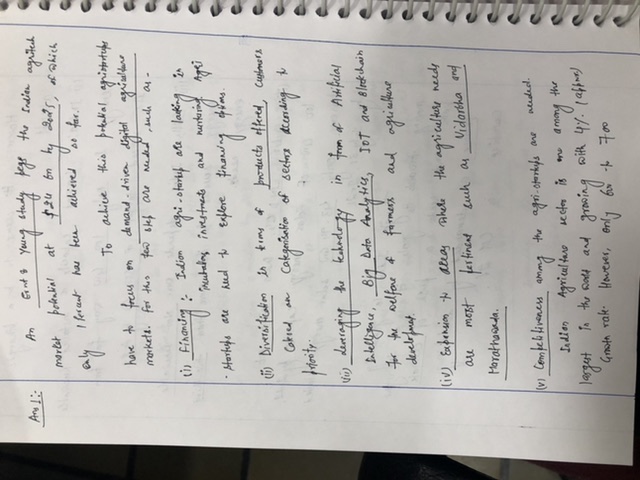 Ans 1:
An Ernst & Young study pegs the Indian agritech
market potential at $24 bn by 2025, of which
only 1 percent has been achieved so far.
To achieve this potential agristartups
have to focus on demand-driven digital agriculture
markets. For this few step are needed, such as -
(i) Financing: Indian agri-startups are lacking in
investments and nurturing Agri
- startups are need to explore financing options.
(ii) Diversification In terms of products offered, customers
Catered an Categorisation of sectors according to
priority.
(iii) Leveraging the technology in from of Artificial
Intelligence, Big Data Analytics, IOT and Blockchain
for the welfare of farmers and agriculture
development.
(iv) Expansion to areas where the agriculture needs
are most pertinent such as Vidarbha and
Marathwada.
(v) Competitiveness among the agri-startups are needed.
Indian Agriculture sector is one among the
largest in the world and growing with 4% (approx)
Growth rate. However, only 600 to 700